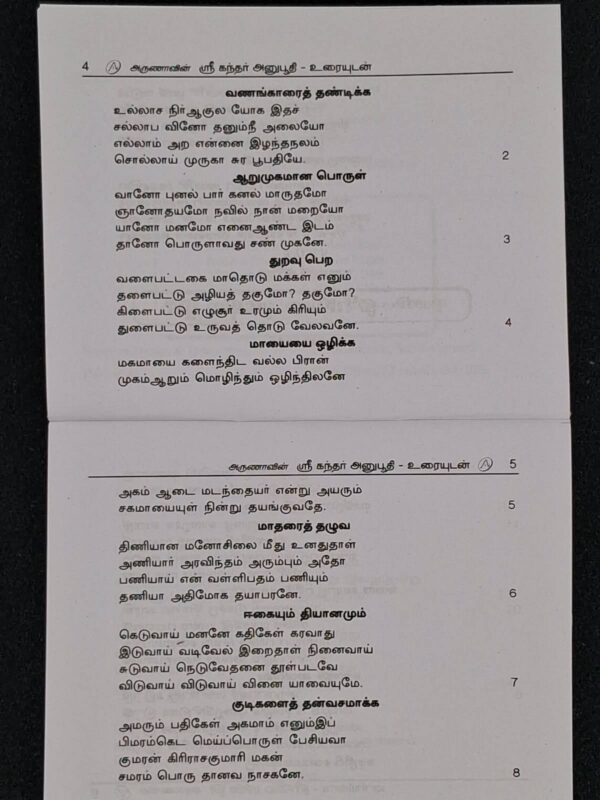 4 அருணாவின் ஸ்ரீ கந்தர் அனுபூதி - உரையுடன்
வணங்காரைத் தண்டிக்க
உல்லாச நிர்ஆகுல யோக இதச்
சல்லாப வினோ தனும்நீ அலையோ
எல்லாம் அற என்னை இழந்தநலம்
சொல்லாய் முருகா சுர பூபதியே. 2
ஆறுமுகமான பொருள்
வானோ புனல் பார் கனல் மாருதமோ
ஞானோதயமோ நவில் நான் மறையோ
யானோ மனமோ எனைஆண்ட இடம்
தானோ பொருளாவது சண் முகனே. 3
துறவு பெற
வளைபட்டகை மாதொடு மக்கள் எனும்
தளைபட்டு அழியத் தகுமோ? தகுமோ?
கிளைபட்டு எழுசூர் உரமும் கிரியும்
துளைபட்டு உருவத் தொடு வேலவனே. 4
மாயையை ஒழிக்க
மகமாயை களைந்திட வல்ல பிரான்
முகம்ஆறும் மொழிந்தும் ஒழிந்திலனே
அருணாவின் ஸ்ரீ கந்தர் அனுபூதி - உரையுடன் 5
அகம் ஆடை மடந்தையர் என்று அயரும்
சகமாயையுள் நின்று தயங்குவதே. 5
மாதரைத் தழுவ
திணியான மனோசிலை மீது உனதுதாள்
அணியார் அரவிந்தம் அரும்பும் அதோ
பணியாய் என் வள்ளிபதம் பணியும்
தணியா அதிமோக தயாபரனே. 6
ஈகையும் தியானமும்
கெடுவாய் மனனே கதிகேள் கரவாது
இடுவாய் வடிவேல் இறைதாள் நினைவாய்
சுடுவாய் நெடுவேதனை தூள்படவே
விடுவாய் விடுவாய் வினை யாவையுமே. 7
குடிகளைத் தன்வசமாக்க
அமரும் பதிகேள் அகமாம் எனும்இப்
பிமரம்கெட மெய்ப்பொருள் பேசியவா
குமரன் கிரிராசகுமாரி மகன்
சமரம் பொரு தானவ நாசகனே. 8